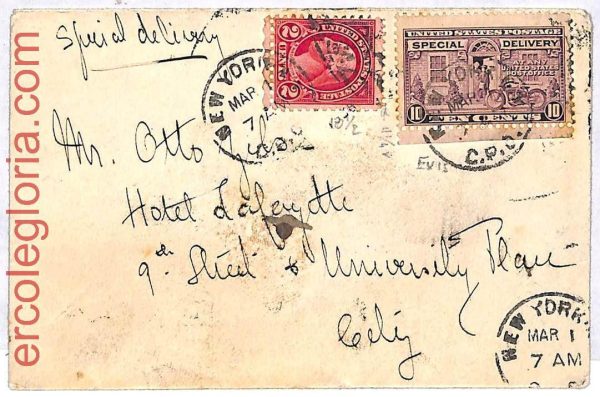 Special delivery
UNITED STATES POSTAGE
2 CENTS 2
UNITED STATES POSTAGE
SPECIAL DELIVERY
AT ANY UNITED STATES POST OFFICE
10 TEN CENTS 10
NEW YORK
MAR
7 A
C.P.O.
NEW YORK
MAR
C.P.O.
18 1/2
Mr. Otto
Hotel Lafayette
9th Street & University Place
City
NEW YORK
MAR 1
7 AM
ercolegloria.com